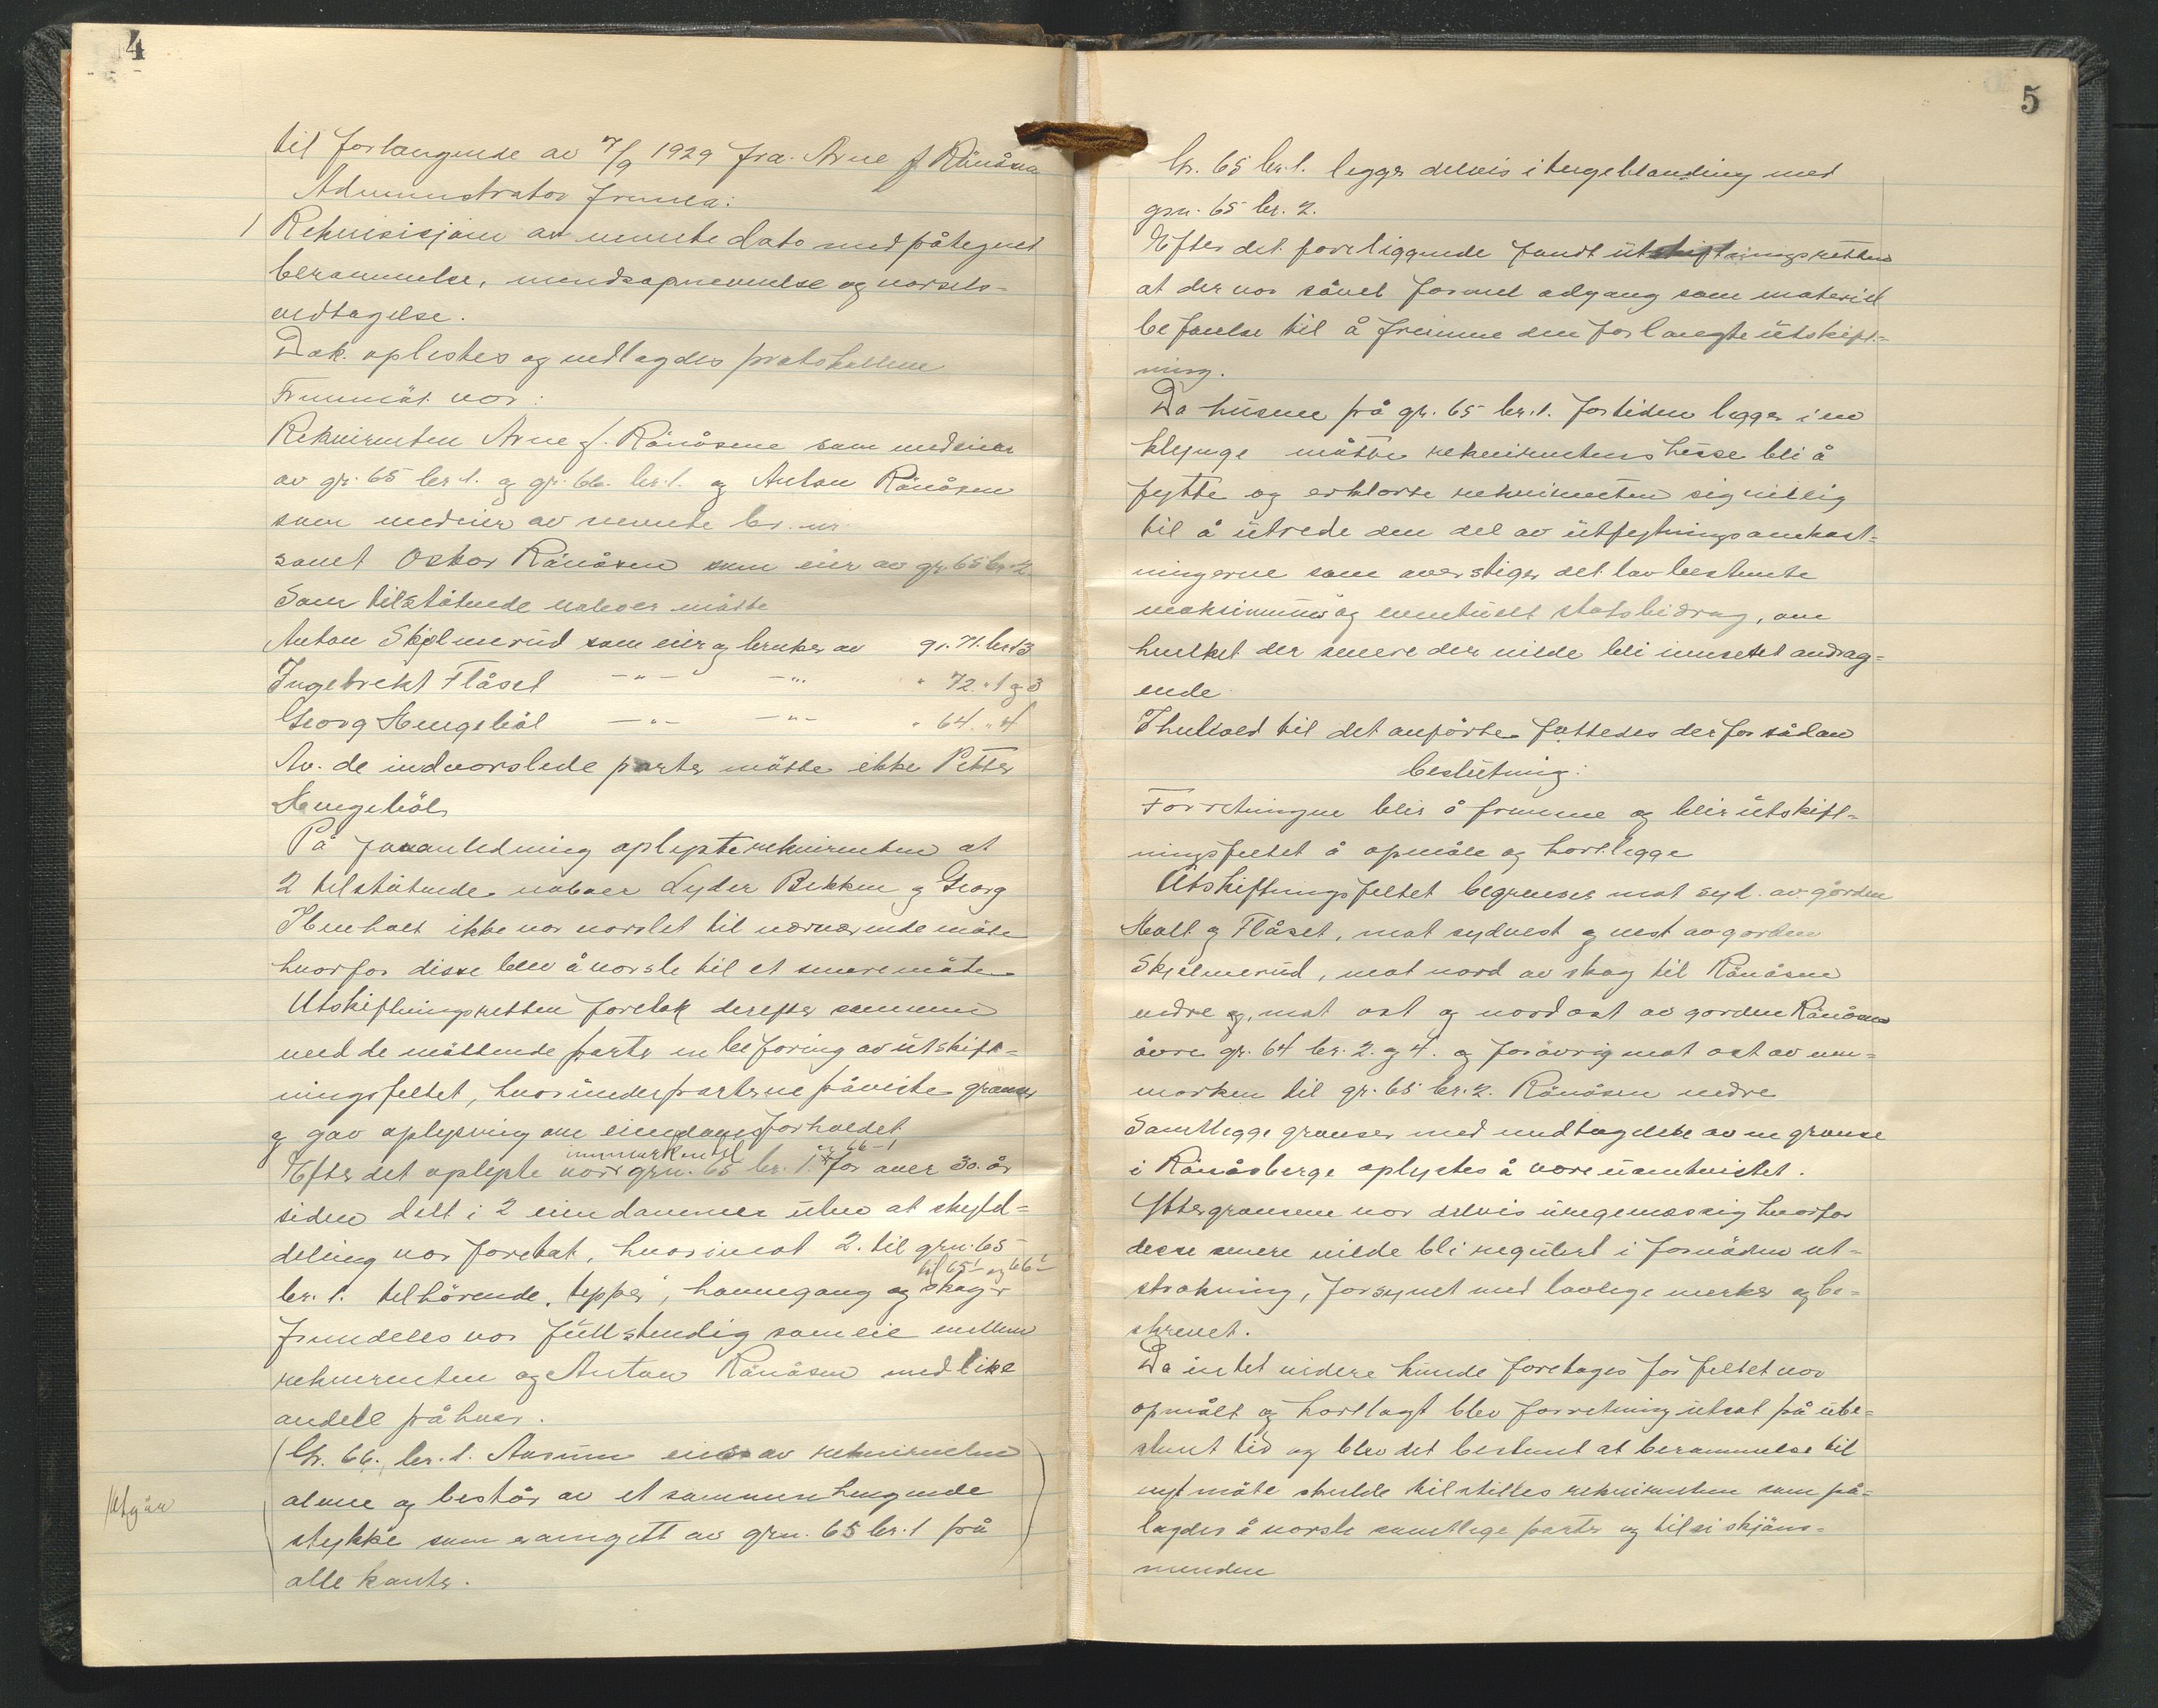 4
til forlangende av 7/9 1929 fra Arne J. Rånåsen
Administrator fremla:
1 Rekvisisjon av nevnte dato med påtegnet
berammelse, mendsopnevnelse og varsels-
vedtagelse.
Dok. oplestes og vedlagdes protokollene
Fremmöt var:
Rekvirenten Arne J. Rånåsene som medeier
av gr. 65 br. 1. og gr. 66. br. 1. og Anton Rånåsen
som medeier av nevnte br. nr.
samt Oskar Rånåsen som eier av gr. 65 br. 2.
Som tilstötende naboer mötte
Anton Skjelmerud som eier og bruker av gr. 71. br. 13
Ingebrekt Flåset -"- -"- " 72. " 1 og 3
Georg Hengehål -"- -"- " 64. " 4
Av. de indvarslede parter mötte ikke Petter
Hengehål
På foranledning oplyste rekvirenten at
2 tilstötende naboer Lyder Bekken og Georg
Ibenholt ikke var varslet til nærværende möte
hvorfor disse blev å varsle til et senere möte
Utskiftningsretten foretok derefter sammen
med de möttende parter en befaring av utskift-
ningsfeltet, hvorunder parterne påviste grenser
og gav oplysning om eiendomsforholdet
Efter det oplyste var innmarken til grn. 65 br. 1. og 66-1 for over 30. år
siden delt i 2 eiendommer uten at skyld-
deling var foretat, hvorimot 2. til grn. 65
br. 1. tilhörende, tepper, havnegang og skog til 65/1 og 66/1
fremdeles var fullstendig sameie mellem
rekvirenten og Anton Rånåsen med like
andele på hver.
(Gr. 66. br. 1. Aasum eies av rekvirenten
alene og består av et sammenhengende
Utgår
stykke som er omgitt av grn. 65 br. 1 på
alle kanter.)
5
Gr. 65 br. 1. ligger delvis i teigeblanding med
grn. 65 br. 2.
Efter det foreliggende fandt utskiftningsretten
at der var såvel formel adgang som materiel
beföielse til å fremme den forlangte utskift-
ning.
Da husene på gr. 65 br. 1. fortiden ligger i en
klynge måtte rekvirentens husse bli å
flytte og erklærte rekvirenten sig villig
til å utrede den del av utflytningsomkost-
ningerne som overstiger det lovbestemte
maksimum og eventuelt statsbidrag, om
hvilket der senere der vilde bli innsendt andrag-
ende
I henhold til det anförte fattedes derfor sådan
beslutning:
Forretningen blir å fremme og blir utskift-
ningsfeltet å opmåle og kartlegge
Utskiftningsfeltet begrenses mot syd. av gården
Holt og Flåset, mot sydvest og vest av gården
Skjelmerud, mot nord av skog til Rånåsen
nedre og, mot ost og nordost av gården Rånåsen
övre gr. 64 br. 2. og 4. og forövrig mot ost av inn-
marken til gr. 65 br. 2. Rånåsen nedre
Samtlige grenser med undtagelse av en grense
i Rånåsberge oplystes å være uomtvistet.
Yttergrensene var delvis uregemessig hvorfor
desse senere vilde bli regulert i fornöden ut-
strekning, forsynet med lovlige merker og be-
skrevet.
Da intet videre kunde foretages för feltet var
opmålt og kartlagt blev forretning utsat på ube-
stemt tid og blev det bestemt at berammelse til
nyt möte skulde tilstilles rekvirenten som på-
lagdes å varsle samtlige parter og tilsi skjöns-
mendene